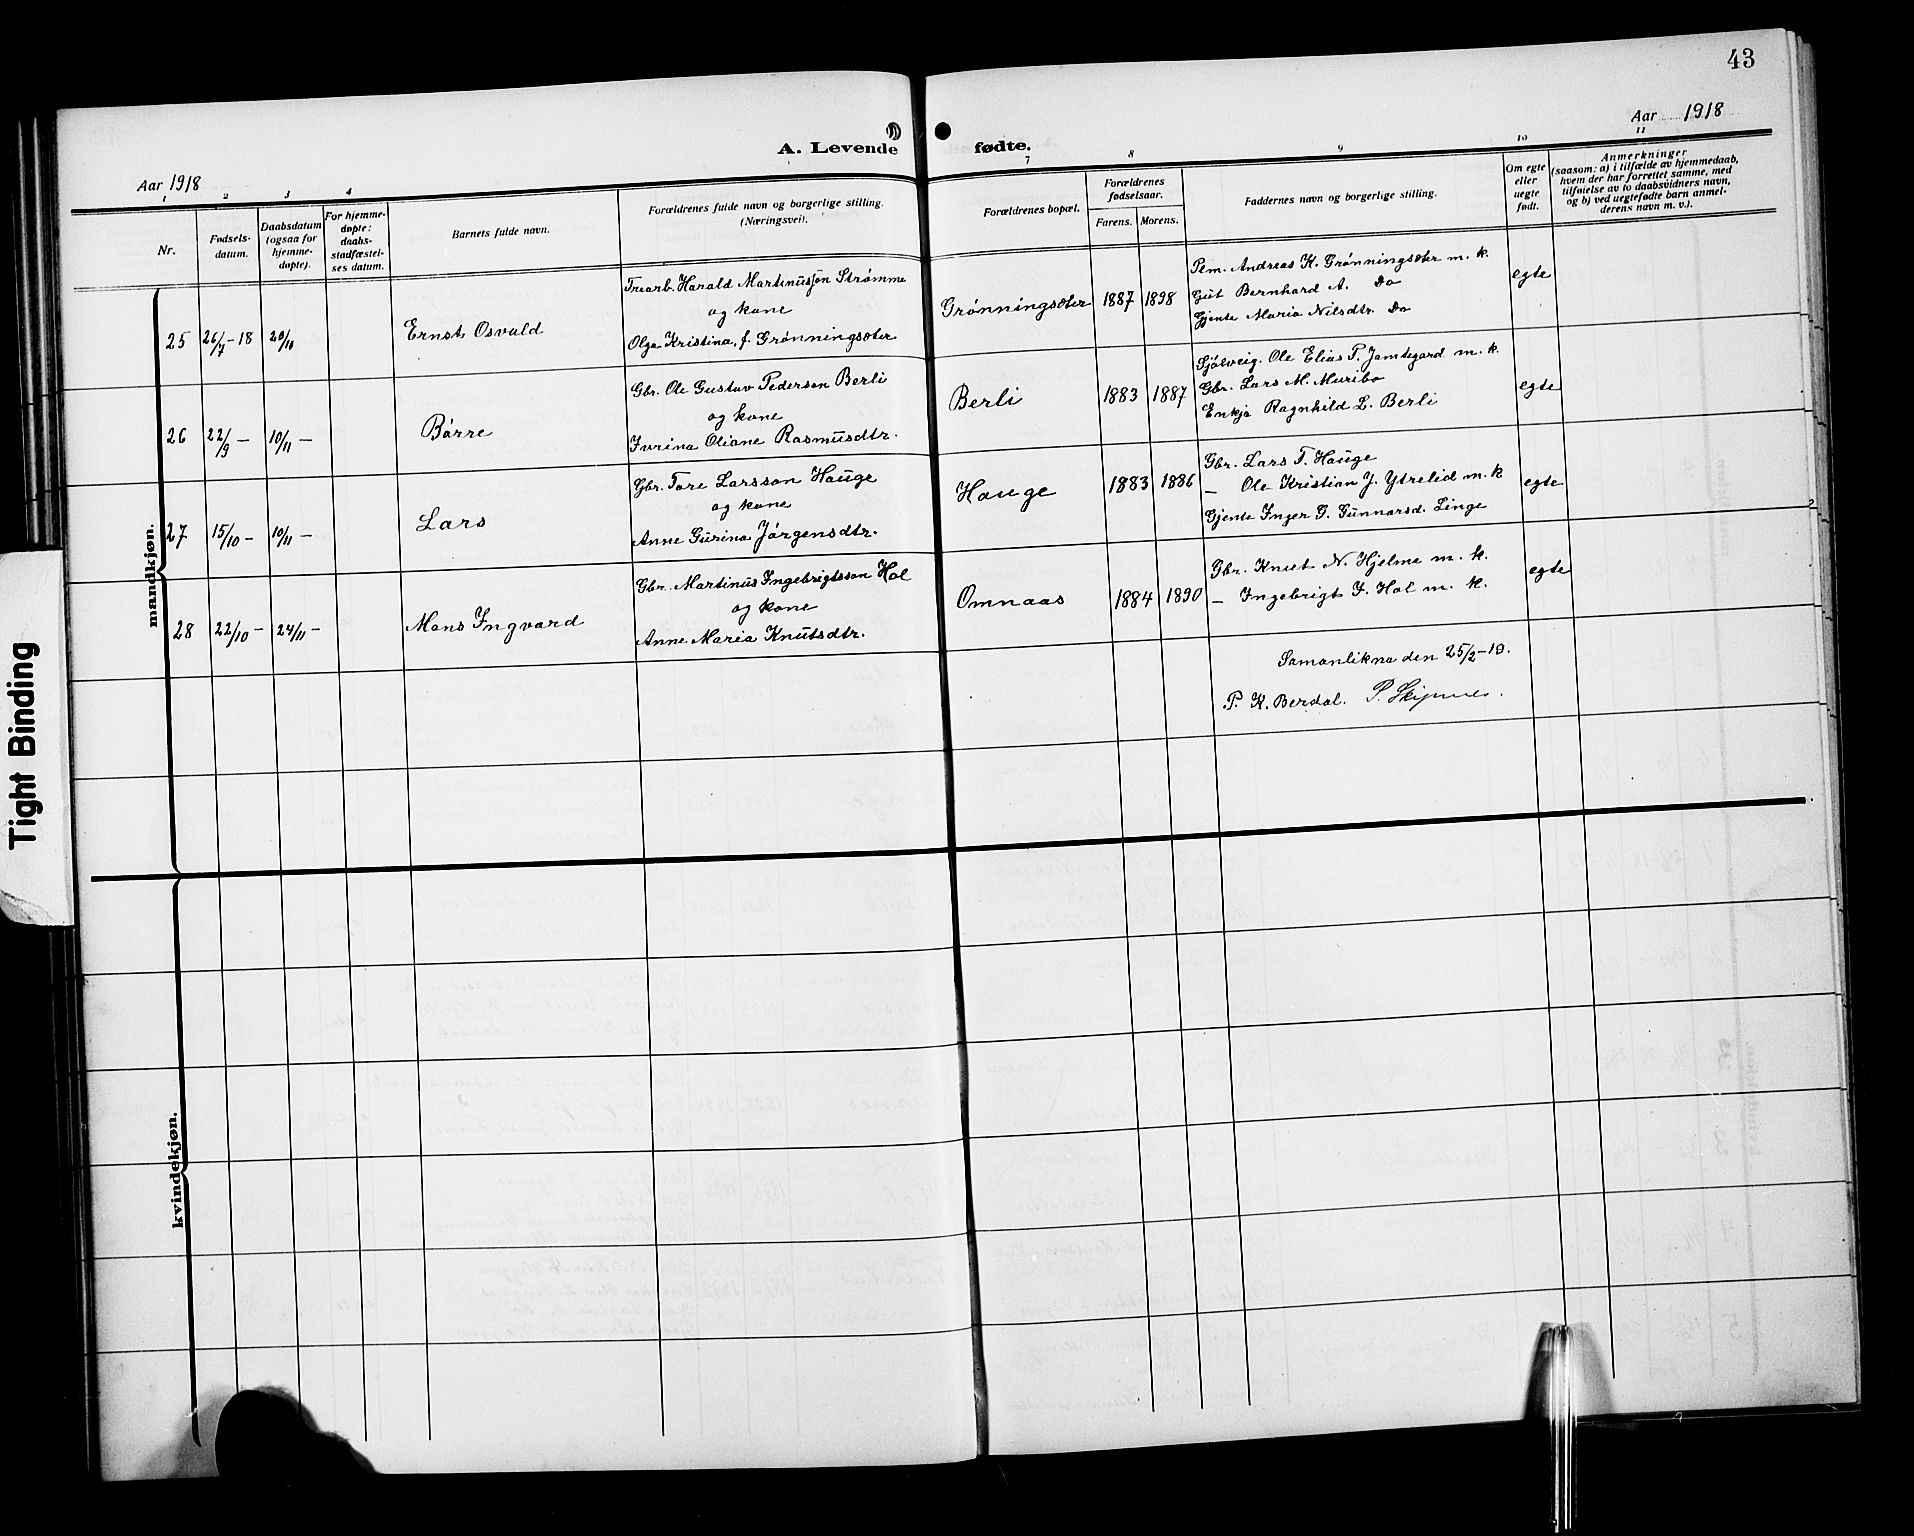 43
Aar 1918
Aar 1918
A. Levende fødte.
1 2 3 4 7 8 9 10 11
Nr.
Fødsels-
datum.
Daabsdatum
(ogsaa for
hjemme-
døpte).
For hjemme-
døpte:
daabs-
stadfæstel-
ses datum.
Barnets fulde navn.
Forældrenes fulde navn og borgerlige stilling.
(Næringsvei).
Forældrenes bopæl.
Forældrenes
fødselsaar.
Farens. Morens.
Faddernes navn og borgerlige stilling.
Om egte
eller
uegte
født.
Anmerkninger
(saasom: a) i tilfælde av hjemmedaab,
hvem der har forrettet samme, med
tilføielse av to daabsvidners navn,
og b) ved uegtefødte barn anmel-
derens navn m. v.).
mandkjøn.
25 26/7-18 20/10 Ernst Osvald
Trearb. Harald Martinussøn Strømme
og kone
Olga Kristina, f. Grønningsæter
Grønningsæter 1887 1898
Pem. Andreas K. Grønningsæter m. k.
Gut Bernhard A. Do
Gjente Maria Nilsdtr. Do
egte
26 22/9 - 10/11 - Børre
Gbr. Ole Gustav Pedersen Berli
og kone
Ivrina Oliane Rasmusdtr.
Berli 1883 1887
Sjølveig. Ole Elias P. Jamtegard m. k.
Gbr. Lars M. Muribø
Enkja Ragnhild L. Berli
egte
27 15/10 - 10/11 - Lars
Gbr. Tore Larsson Hauge
og kone
Anne Gurina Jørgensdtr.
Hauge 1883 1886
Gbr. Lars T. Hauge
- Ole Kristian J. Ytrelid m. k
Gjente Inger G. Gunnarsd. Linge
egte
28 22/10 - 24/11 - Mons Ingvard
Gbr. Martinus Ingebrigtsson Hol
og kone
Anne Maria Knutsdtr.
Omnaas 1884 1890
Gbr. Knut N. Hjelme m. k.
- Ingebrigt I. Hol m. k.
egte
Samanlikna den 25/2-19.
P. K. Berdal. P. Skipnes.
kvindekjøn.
Tight Binding